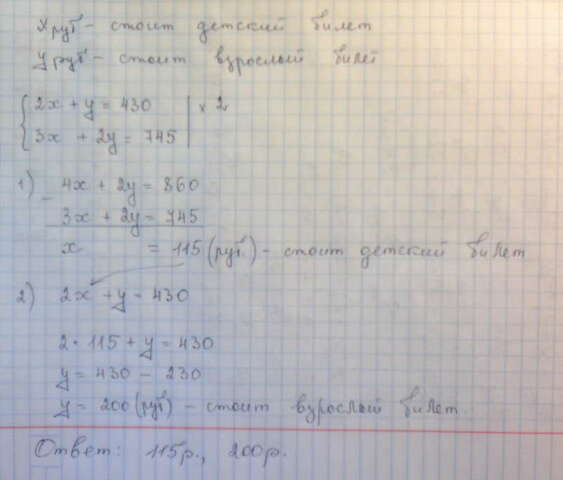 x руб – стоит детский билет
y руб – стоит взрослый билет
{ 2x + y = 430 | × 2
3x + 2y = 745 |
1) 4x + 2y = 860
– 3x + 2y = 745
x = 115 (руб.) – стоит детский билет
2) 2x + y = 430
2 · 115 + y = 430
y = 430 – 230
y = 200 (руб) – стоит взрослый билет.
Ответ: 115р., 200р.